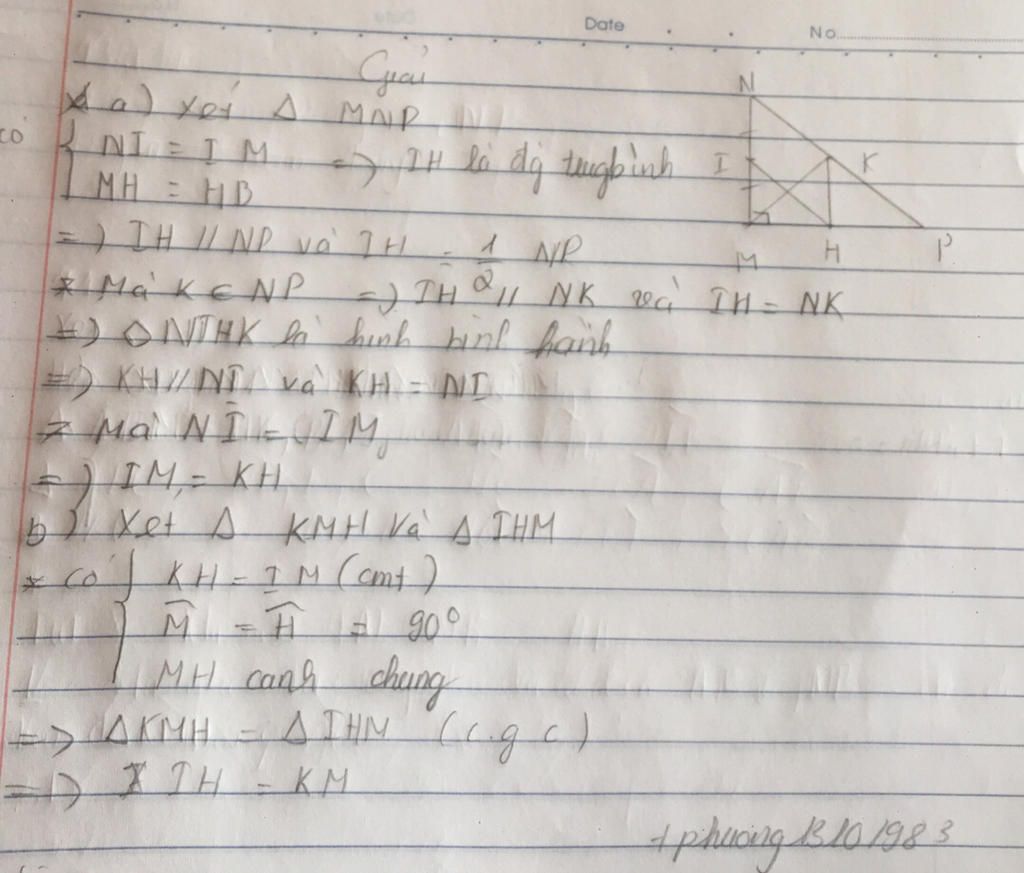 Date No
Giải
a) Xét Δ MNP
có { NI = IM => IH là đg trugbình
MH = HB
=> IH // NP và IH = 1/2 NP
* Mà K ∈ NP => IH // NK và IH = NK
=> ◇ NIHK là hình bình hành
=> KH // NI và KH = NI
* Mà NI = IM
=> IM = KH
b) Xét Δ KMH và Δ IHM
* Có { KH = IM (cmt)
M̂ = Ĥ = 90°
MH cạnh chung
=> ΔKMH = Δ IHM (c.g c)
=> IH = KM
N
I K
M H P
+phuong13101983